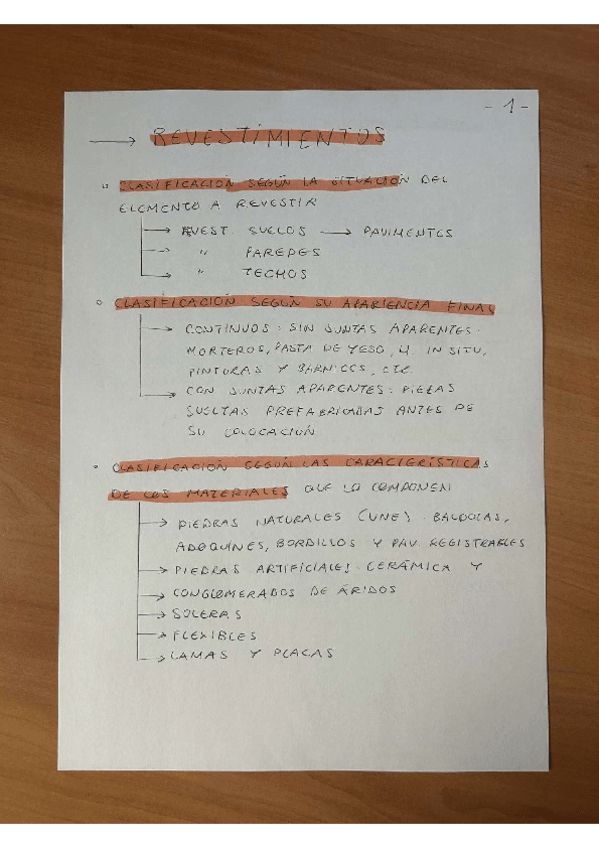 - 1 -
→ REVESTIMIENTOS
CLASIFICACIÓN SEGÚN LA SITUACIÓN DEL
ELEMENTO A REVESTIR
→ REVEST. SUELOS → PAVIMENTOS
→ " PAREDES
→ " TECHOS
CLASIFICACIÓN SEGÚN SU APARIENCIA FINAL
→ CONTINUOS: SIN JUNTAS APARENTES.
MORTEROS, PASTA DE YESO, H. IN SITU,
PINTURAS Y BARNICES, ETC.
→ CON JUNTAS APARENTES: PIEZAS
SUELTAS PREFABRICADAS ANTES DE
SU COLOCACIÓN
CLASIFICACIÓN SEGÚN LAS CARACTERÍSTICAS
DE LOS MATERIALES QUE LO COMPONEN
→ PIEDRAS NATURALES (UNE). BALDOSAS,
ADOQUINES, BORDILLOS Y PAV. REGISTRABLES
→ PIEDRAS ARTIFICIALES. CERÁMICA Y
→ CONGLOMERADOS DE ÁRIDOS
→ SOLERAS
→ FLEXIBLES
→ LAMAS Y PLACAS